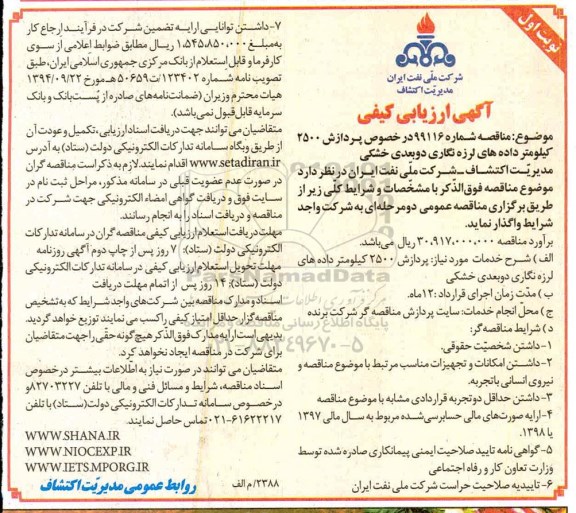 نوبت اول
شرکت ملّی نفت ایران
مدیریّت اکتشاف
آگهی ارزیابی کیفی
موضوع: مناقصه شماره ۹۹۱۱۶ در خصوص پردازش ۲۵۰۰
کیلومتر داده های لرزه نگاری دوبعدی خشکی
مدیریّت اکتشاف - شرکت ملّی نفت ایران در نظر دارد
موضوع مناقصه فوق‌الذکر با مشخّصات و شرایط کلّی زیر از
طریق برگزاری مناقصه عمومی دو مرحله‌ای به شرکت واجد
شرایط واگذار نماید.
برآورد مناقصه ۳۰،۹۱۷،۰۰۰،۰۰۰ ریال می‌باشد.
الف ) شرح خدمات مورد نیاز: پردازش ۲۵۰۰ کیلومتر داده های
لرزه نگاری دوبعدی خشکی
ب ) مدّت زمان اجرای قرارداد: ۱۲ماه.
ج ) محلّ انجام خدمات: سایت پردازش مناقصه گر برنده
د ) شرایط مناقصه‌گر:
۱-داشتن شخصیّت حقوقی.
۲-داشتن امکانات و تجهیزات مناسب مرتبط با موضوع مناقصه و
نیروی انسانی باتجربه.
۳-داشتن حداقل دو تجربه قراردادی مشابه با موضوع مناقصه
۴-ارایه صورت‌های مالی حسابرسی‌شده مربوط به سال مالی ۱۳۹۷
یا ۱۳۹۸.
۵-گواهی نامه تایید صلاحیت ایمنی پیمانکاری صادره شده توسط
وزارت تعاون کار و رفاه اجتماعی
۶-تاییدیه صلاحیت حراست شرکت ملی نفت ایران
۷-داشتن توانایی ارایه تضمین شرکت در فرآیند ارجاع کار
به مبلغ ۱،۵۴۵،۸۵۰،۰۰۰ ریال مطابق ضوابط اعلامی از سوی
کارفرما و قابل استعلام از بانک مرکزی جمهوری اسلامی ایران، طبق
تصویب نامه شماره ۱۲۳۴۰۲/ت۵۰۶۵۹هـ مورخ ۱۳۹۴/۰۹/۲۲
هیات محترم وزیران (ضمانت‌نامه‌های صادره از پُست‌بانک و بانک
سرمایه قابل قبول نمی‌باشد).
متقاضیان می توانند جهت دریافت اسناد ارزیابی، تکمیل و عودت آن
از طریق وبگاه سامانه تدارکات الکترونیکی دولت (ستاد) به آدرس
www.setadiran.ir اقدام نمایند. لازم به ذکر است مناقصه گران
در صورت عدم عضویت قبلی در سامانه مذکور، مراحل ثبت نام در
سایت فوق و دریافت گواهی امضاء الکترونیکی جهت شرکت در
مناقصه و دریافت اسناد را به انجام رسانند.
مهلت دریافت استعلام ارزیابی کیفی مناقصه گران در سامانه تدارکات
الکترونیکی دولت (ستاد): ۷ روز پس از چاپ دوم آگهی روزنامه
مهلت تحویل استعلام ارزیابی کیفی در سامانه تدارکات الکترونیکی
دولت (ستاد): ۱۴ روز پس از اتمام مهلت دریافت
اسناد و مدارک مناقصه بین شرکت‌های واجد شرایط که به تشخیص
مناقصه‌گزار حداقل امتیاز کیفی را کسب می نمایند توزیع خواهد گردید.
بدیهی است ارایه مدارک فوق‌الذکر هیچ‌گونه حقّی را جهت متقاضیان
برای شرکت در مناقصه ایجاد نخواهد کرد.
متقاضیان می توانند در صورت نیاز به اطّلاعات بیشتر در خصوص
اسناد مناقصه، شرایط و مسائل فنی و مالی با تلفن ۸۲۷۰۳۲۲۷ و
در خصوص سامانه تدارکات الکترونیکی دولت (ستاد) با تلفن
۰۲۱-۶۱۶۲۲۲۱۷ تماس حاصل نمایند.
WWW.SHANA.IR
WWW.NIOCEXP.IR
WWW.IETS.MPORG.IR
۲۳۸۸/م الف
روابط عمومی مدیریّت اکتشاف
ParsNamadData
پایگاه اطلاع رسانی مناقصه و مزایده